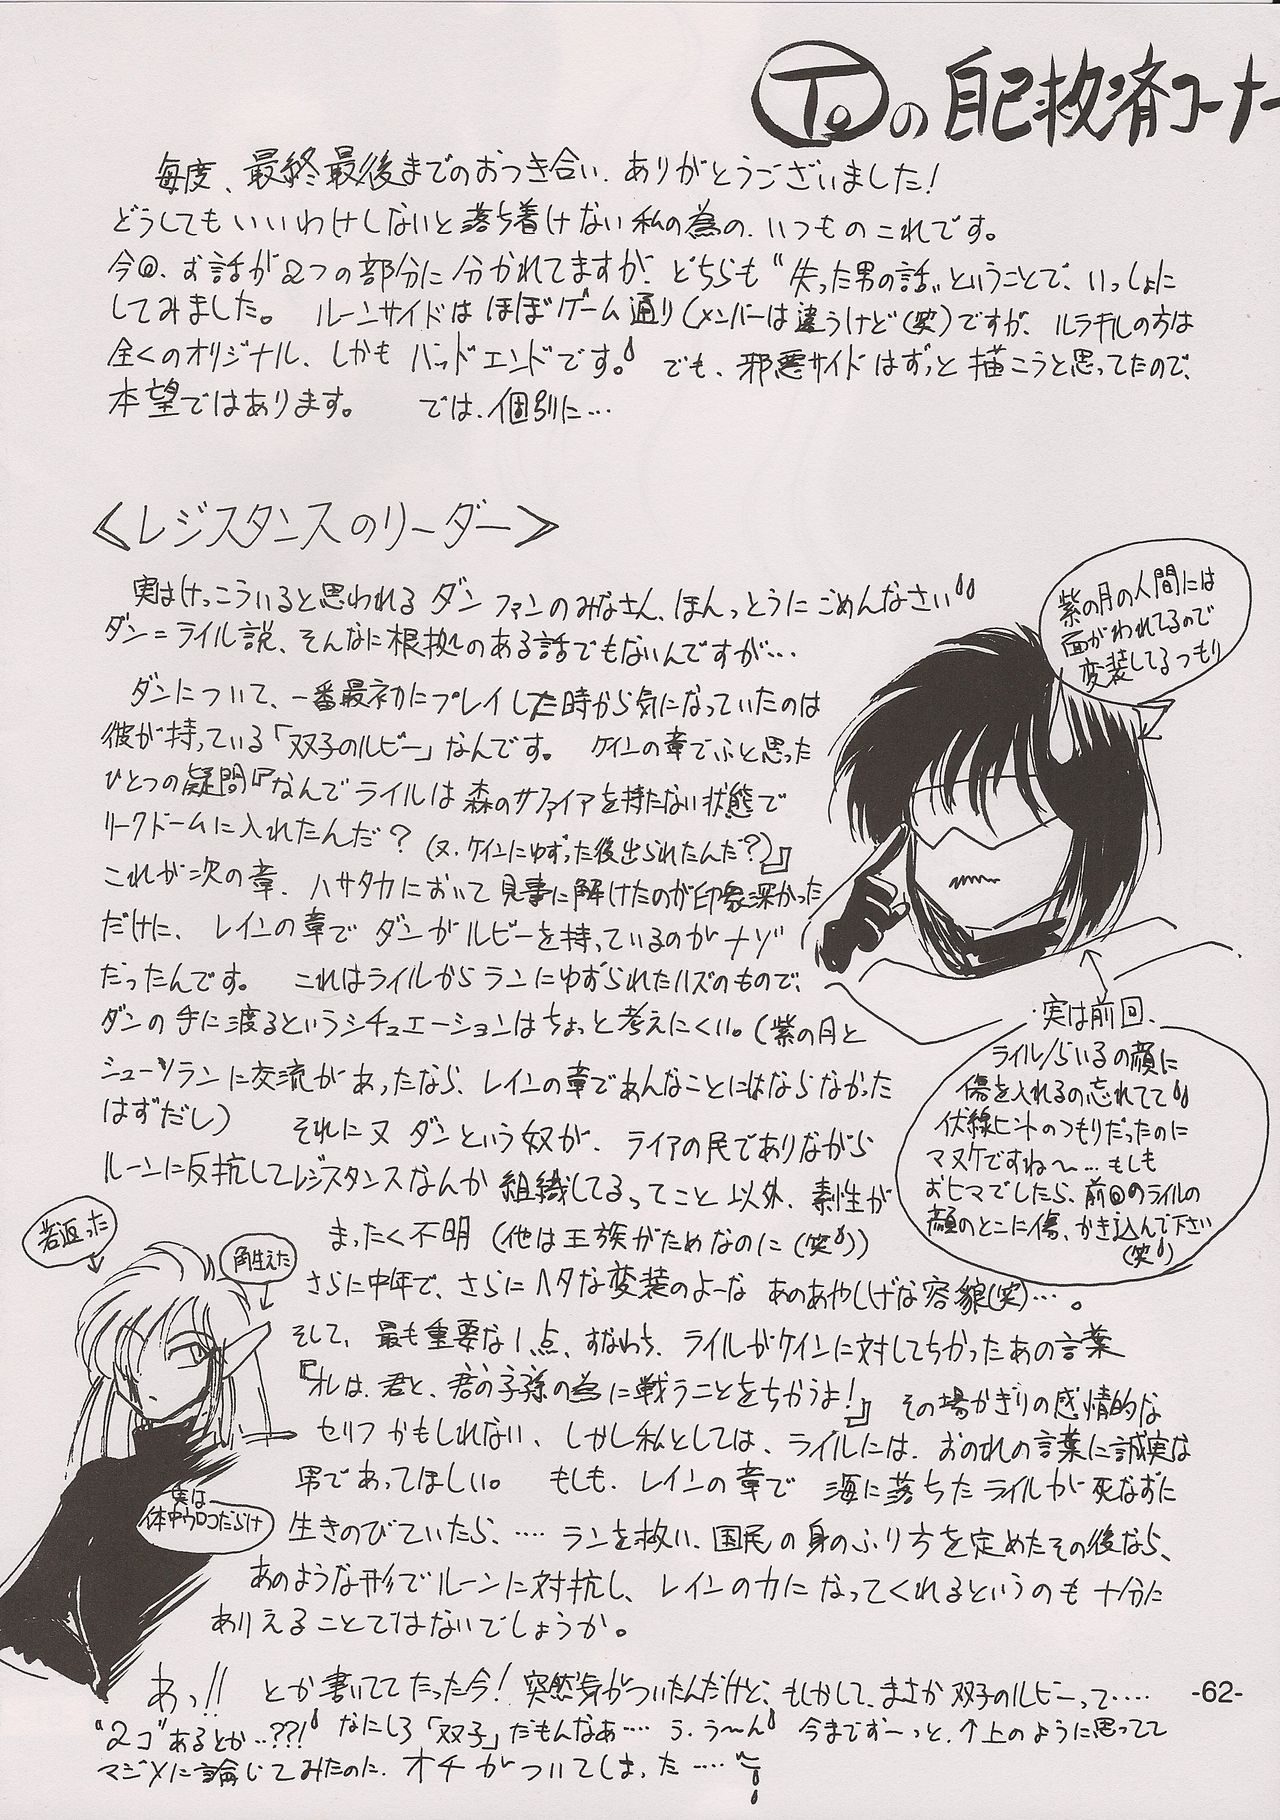 Toの自己救済コーナー
毎度、最終最後までのおつき合い、ありがとうございました!
どうしてもいいわけしないと落ち着けない私の為の、いつものこれです。
今回、お話が2つの部分に分かれてますが、どちらも“失った男の話”ということで、いっしょに
してみました。 ルーンサイドはほぼゲーム通り(メンバーは違うけど(笑)ですが、ルラキルの方は
全くのオリジナル、しかもバッドエンドです。でも、邪悪サイドはずっと描こうと思ってたので、
本望ではあります。 では、個別に…
≪レジスタンスのリーダー≫
実はけっこういると思われるダンファンのみなさん、ほんっとうにごめんなさい
ダン=ライル説、そんなに根拠のある話でもないんですが…
ダンについて、一番最初にプレイした時から気になっていたのは
彼が持っている「双子のルビー」なんです。 ケインの章でふと思った
ひとつの疑問『なんでライルは森のサファイアを持たない状態で
リークドームに入れたんだ?(又、ケインにゆずった後出られたんだ?)』
これが次の章、ハサタカにおいて見事に解けたのが印象深かった
だけに、レインの章でダンがルビーを持っているのがナゾ
だったんです。 これはライルからランにゆずられたハズのもので、
ダンの手に渡るというシチュエーションはちょっと考えにくい。(紫の月と
シューツランに交流があったなら、レインの章であんなことにはならなかった
はずだし) それに又ダンという奴が、ライアの民でありながら
ルーンに反抗してレジスタンスなんか組織してるってこと以外、素性が
まったく不明(他は王族がためなのに(笑))
さらに中年で、さらにヘタな変装のよーなあのあやしげな容貌(笑)…。
そして、最も重要な1点、すなわち、ライルがケインに対してちかったあの言葉
『オレは、君と、君の子孫の為に戦うことをちかうよ!』その場かぎりの感情的な
セリフかもしれない、しかし私としては、ライルには、おのれの言葉に誠実な
男であってほしい。 もしも、レインの章で海に落ちたライルが死なずに
生きのびていたら、……ランを救い、国民の身のふり方を定めたその後なら、
あのような形でルーンに対抗し、レインの力になってくれるというのも十分に
ありえることではないでしょうか。
あっ!! とか書いててたった今!突然気がついたんだけど、もしかして、まさか双子のルビーって……
“2コ”あるとか…??! なにしろ「双子」だもんなぁ…… う、う〜ん 今までずーっと、↑上のように思ってて
マジメに論じてみたのに、オチがついてしまった……
紫の月の人間には
面がわれてるので
変装してるつもり
実は前回、
ライル/らいるの顔に
傷を入れるの忘れてて
伏線ヒントのつもりだったのに
マヌケですね〜…もしも
おヒマでしたら、前回のライルの
顔のとこに傷、かき込んで下さい
(笑)
若返った
角生えた
実は
体中ウロコだらけ
-62-